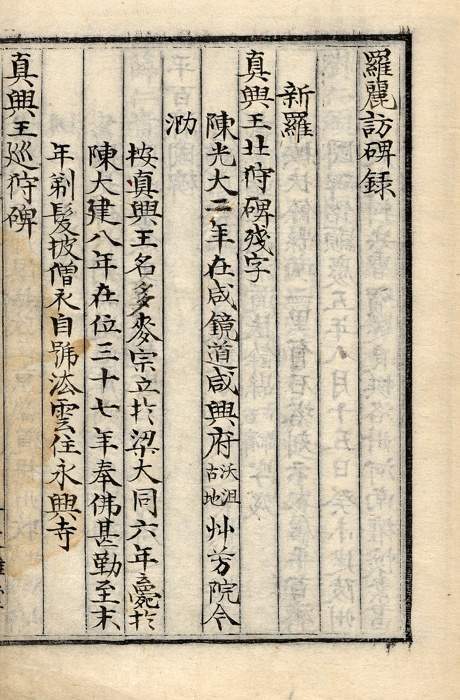 羅麗訪碑錄
新羅
真興王北狩碑殘字
陳光大二年在咸鏡道咸興府沃沮古地艸芳院今
泐
按真興王名彡麥宗立於梁大同六年薨於
陳大建八年在位三十七年奉佛甚勤至末
年剃髮披僧衣自號法雲住永興寺
真興王巡狩碑